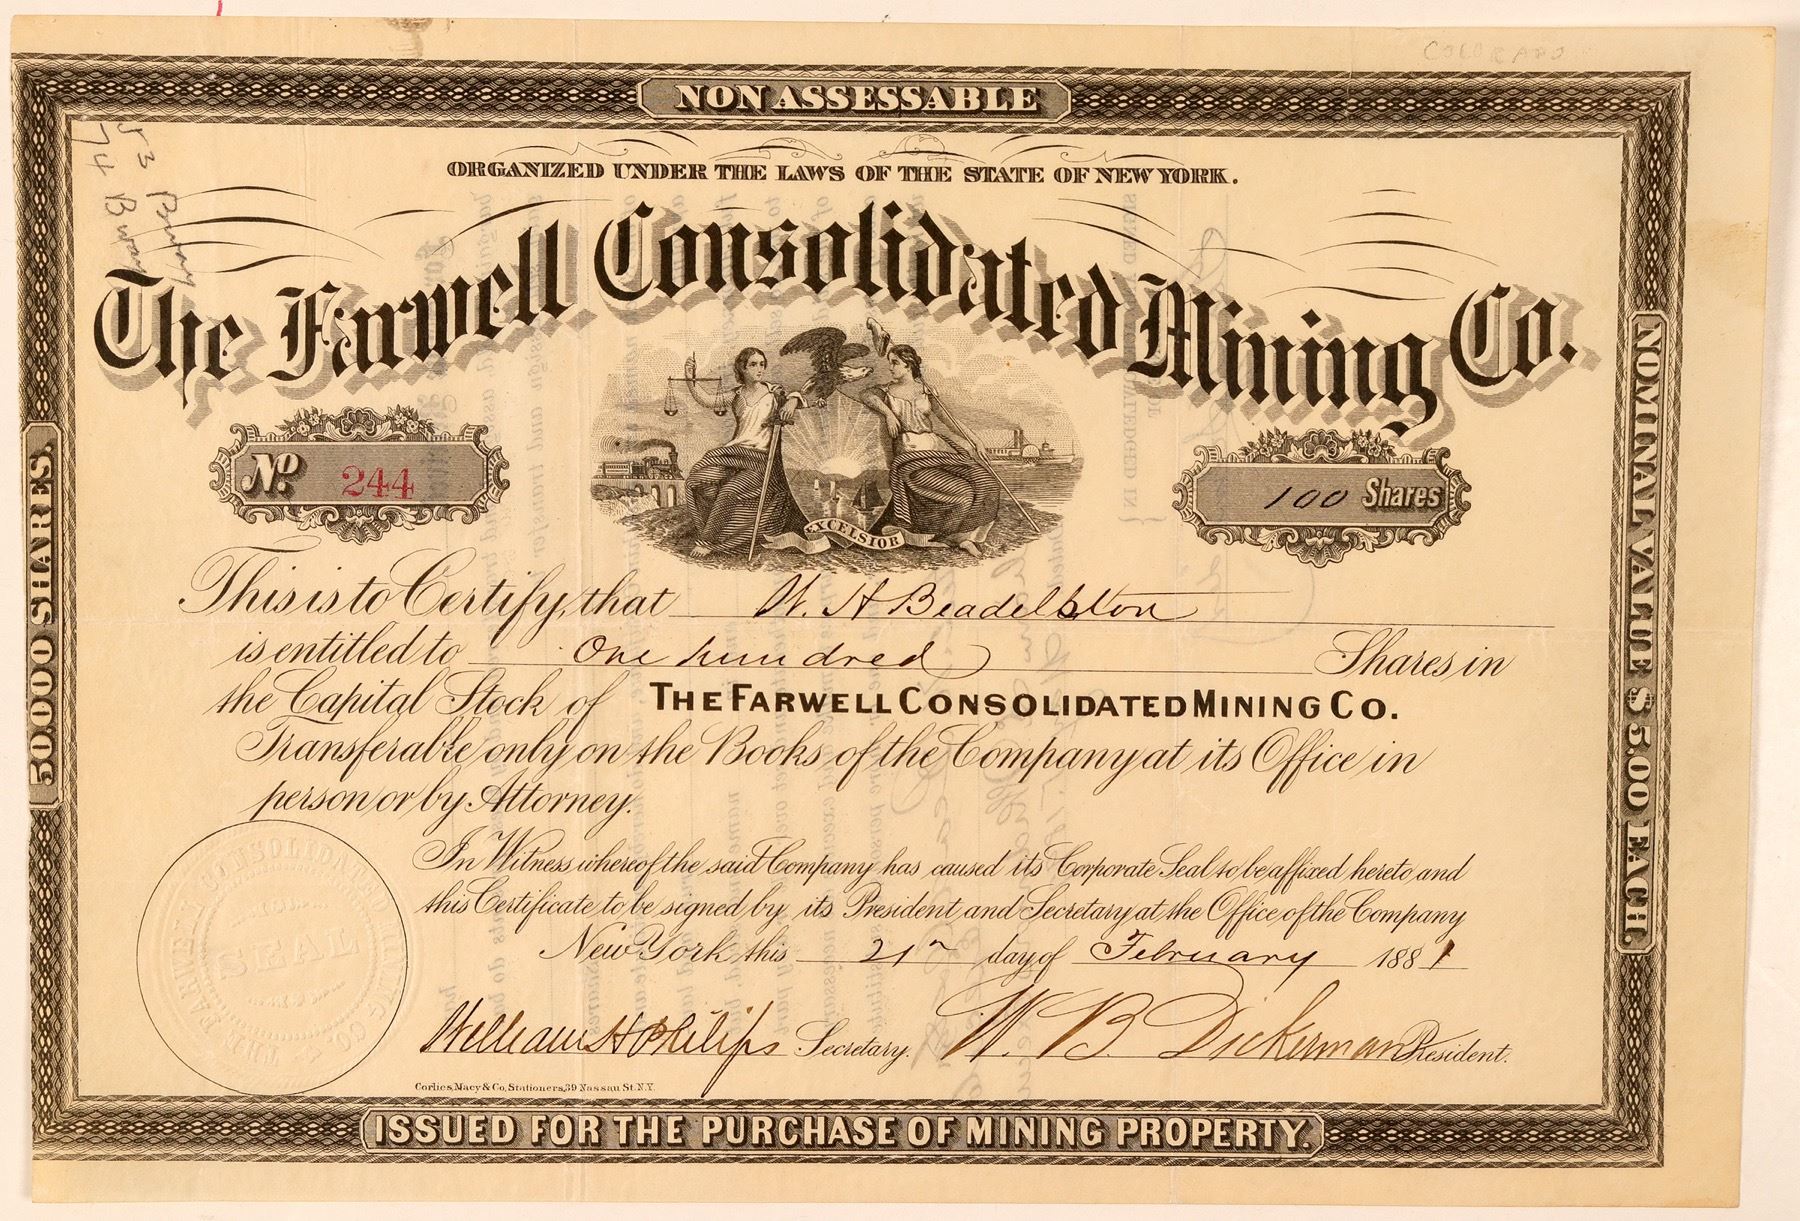 COLORADO
NON ASSESSABLE
ORGANIZED UNDER THE LAWS OF THE STATE OF NEW YORK.
The Farwell Consolidated Mining Co.
No. 244
100 Shares
EXCELSIOR
This is to Certify, that W. H Beadelston
is entitled to One hundred Shares in
the Capital Stock of THE FARWELL CONSOLIDATED MINING CO.
Transferable only on the Books of the Company at its Office in
person or by Attorney.
In Witness whereof the said Company has caused its Corporate Seal to be affixed hereto and
this Certificate to be signed by its President and Secretary at the Office of the Company
New York this 21 day of February 1881
William H Philips Secretary.
W. B. Dickerman President.
THE FARWELL CONSOLIDATED MINING CO.
SEAL
Corlies, Macy & Co, Stationers, 39 Nassau St. N.Y.
ISSUED FOR THE PURCHASE OF MINING PROPERTY.
50000 SHARES.
NOMINAL VALUE $5.00 EACH.
74 B